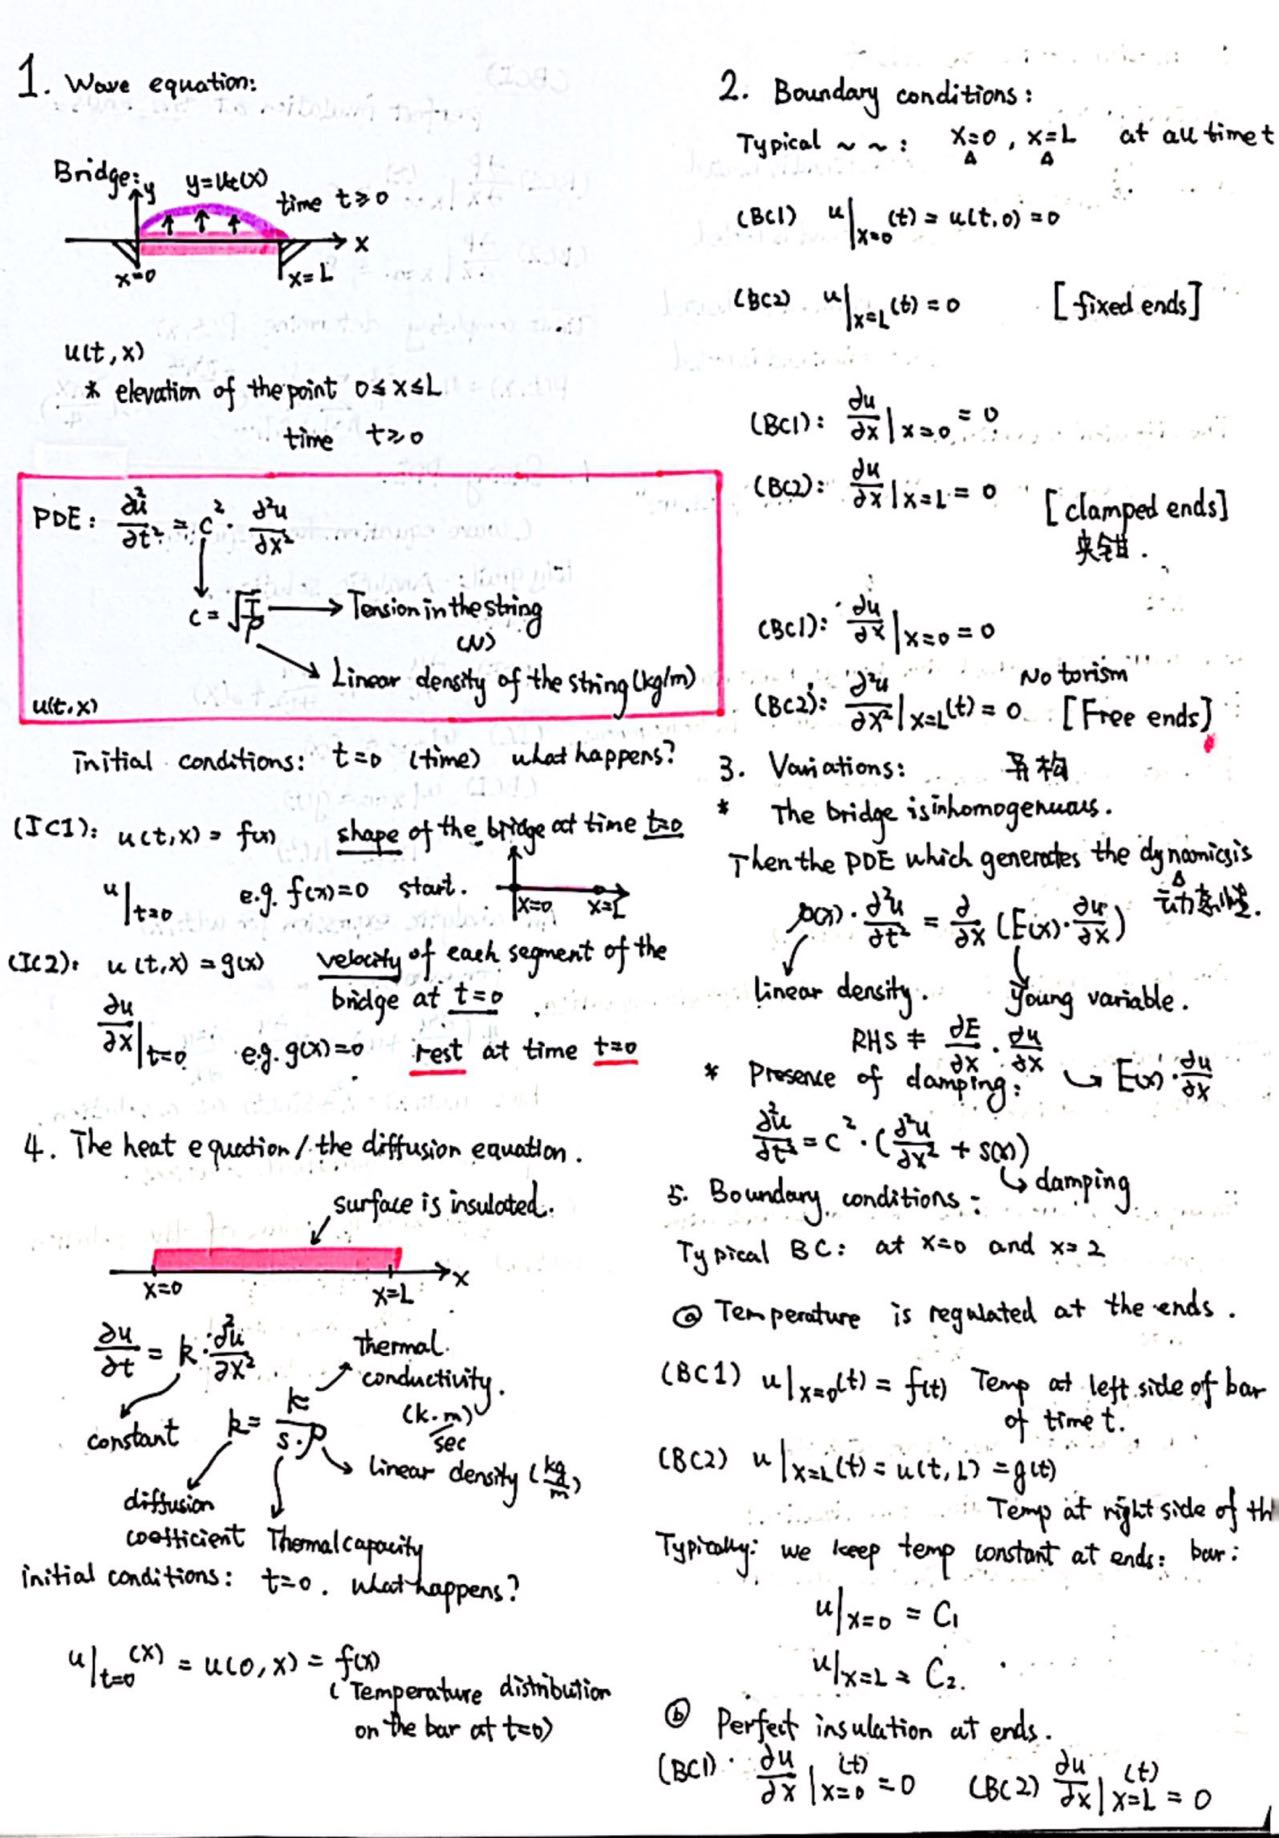 1. Wave equation:
Bridge: y y=Ut(x) time t≥0
x
x=0 x=L
u(t,x)
* elevation of the point 0≤x≤L
time t≥0
PDE: ∂²u/∂t² = c² · ∂²u/∂x²
c = √(T/ρ) → Tension in the string
(N)
Linear density of the string (kg/m)
u(t,x)
initial conditions: t=0 (time) what happens?
(IC1): u(t,x) = f(x) shape of the bridge at time t=0
u|t=0 e.g. f(x)=0 start. x=0 x=L
(IC2): u(t,x) = g(x) velocity of each segment of the
bridge at t=0.
∂u/∂x|t=0 e.g. g(x)=0 rest at time t=0
4. The heat equation / the diffusion equation.
surface is insulated.
x=0 x=L x
∂u/∂t = k · ∂²u/∂x²
constant
k = K/(s·ρ)
Thermal
conductivity.
(k·m)/sec
linear density (kg/m)
diffusion
coefficient Thermal capacity
initial conditions: t=0. what happens?
u|t=0 (x) = u(0,x) = f(x)
(Temperature distribution
on the bar at t=0)
2. Boundary conditions:
Typical ~ ~: x=0, x=L at all time t
(BC1) u|x=0 (t) = u(t,0) = 0
(BC2) u|x=L (t) = 0 [fixed ends]
(BC1): ∂u/∂x|x=0 = 0
(BC2): ∂u/∂x|x=L = 0 [clamped ends]
夹钳.
(BC1): ∂u/∂x|x=0 = 0
No torism
(BC2): ∂²u/∂x²|x=L (t) = 0 [Free ends]
3. Variations: 异构
* The bridge is inhomogenuous.
Then the PDE which generates the dynamics is
ρ(x) · ∂²u/∂t² = ∂/∂x (E(x) · ∂u/∂x)
linear density. Young variable.
RHS ≠ ∂E/∂x · ∂u/∂x
E(x) · ∂u/∂x
* Presence of damping:
∂²u/∂t² = c² · (∂²u/∂x² + s(x))
damping
5. Boundary conditions:
Typical BC: at x=0 and x=2
ⓐ Temperature is regulated at the ends.
(BC1) u|x=0 (t) = f(t) Temp at left side of bar
of time t.
(BC2) u|x=L (t) = u(t,L) = g(t)
Temp at right side of th
bar:
Typically: we keep temp constant at ends:
u|x=0 = C₁
u|x=L = C₂.
ⓑ Perfect insulation at ends.
(BC1) · ∂u/∂x|x=0 (t) = 0 (BC2) ∂u/∂x|x=L (t) = 0